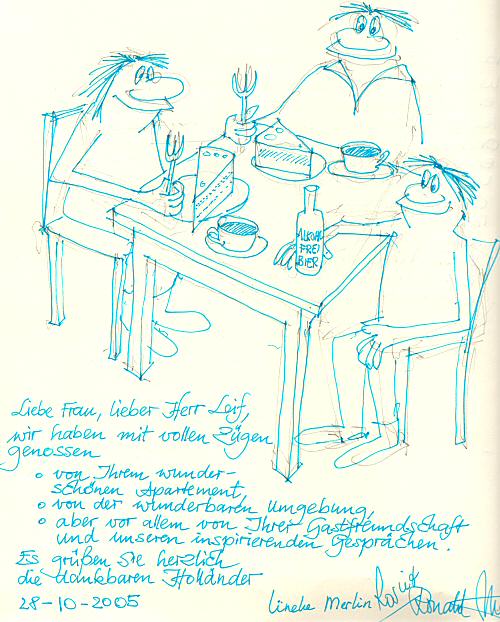 ALKOHOL
FREI
BIER
Liebe Frau, lieber Herr Leif,
wir haben mit vollen Zügen
genossen
o von Ihrem wunder-
schönen Apartement,
o von der wunderbaren Umgebung,
o aber vor allem von Ihrer Gastfreundschaft
und unseren inspirierenden Gesprächen.
Es grüßen Sie herzlich
die dankbaren Holländer
28-10-2005
Lineke Merlin Ronald